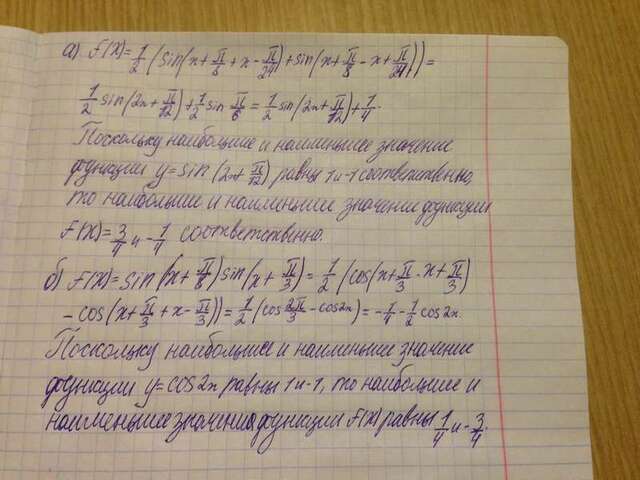 а) F(x)=1/2(sin(x+π/8+x-π/24)+sin(x+π/8-x+π/24))=
1/2 sin(2x+π/12)+1/2 sin π/6=1/2 sin(2x+π/12)+1/4.
Поскольку наибольшие и наименьшее значение
функции y=sin(2x+π/12) равны 1 и -1 соответственно,
то наибольшие и наименьшие значение функции
F(x)=3/4 и -1/4 соответственно.
б) F(x)=sin(x+π/8)sin(x+π/3)=1/2(cos(x+π/3-x+π/3)
-cos(x+π/3+x-π/3))=1/2(cos 2π/3-cos2x)=-1/4-1/2 cos2x.
Поскольку наибольшие и наименьшие значение
функции y=cos2x равны 1 и -1, то наибольшие и
наименьшие значения функции F(x) равны 1/4 и -3/4.